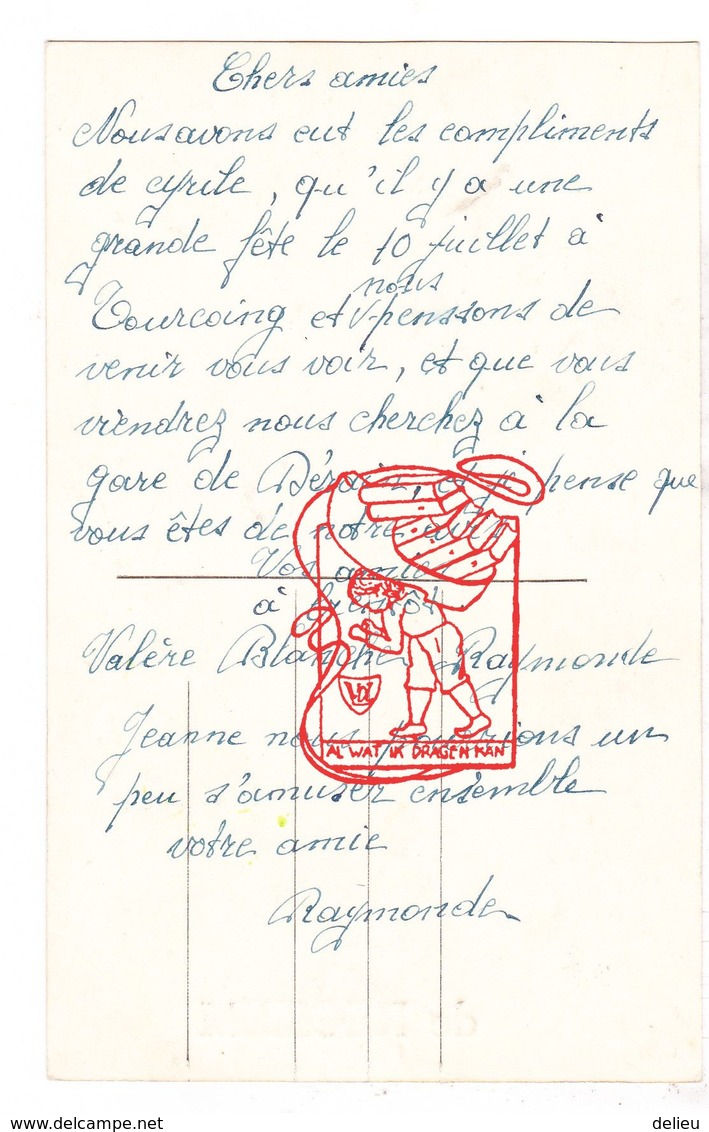 Chers amies
Nous avons eut les compliments
de cyrile, qu'il y a une
grande fête le 10 juillet à
nous
Tourcoing et V-penssons de
venir vous voir, et que vous
viendrez nous cherchez à la
gare de et je pense que
vous êtes de notre avis
Vos amies
à bientôt
Valère Blanche Raymonde
VDV
Jeanne nous pourrions un
AL WAT IK DRAGEN KAN
peu s'amuser ensemble
votre amie
Raymonde
www.delcampe.net
delieu